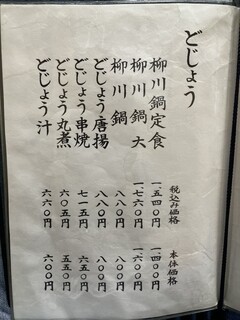 どじょう
税込み価格 本体価格
柳川鍋定食 一、五四〇円 一、四〇〇円
柳川鍋 大 一、七六〇円 一、六〇〇円
柳川鍋 八八〇円 八〇〇円
どじょう唐揚 八八〇円 八〇〇円
どじょう串焼 七一五円 六五〇円
どじょう丸煮 六〇五円 五五〇円
どじょう汁 六六〇円 六〇〇円